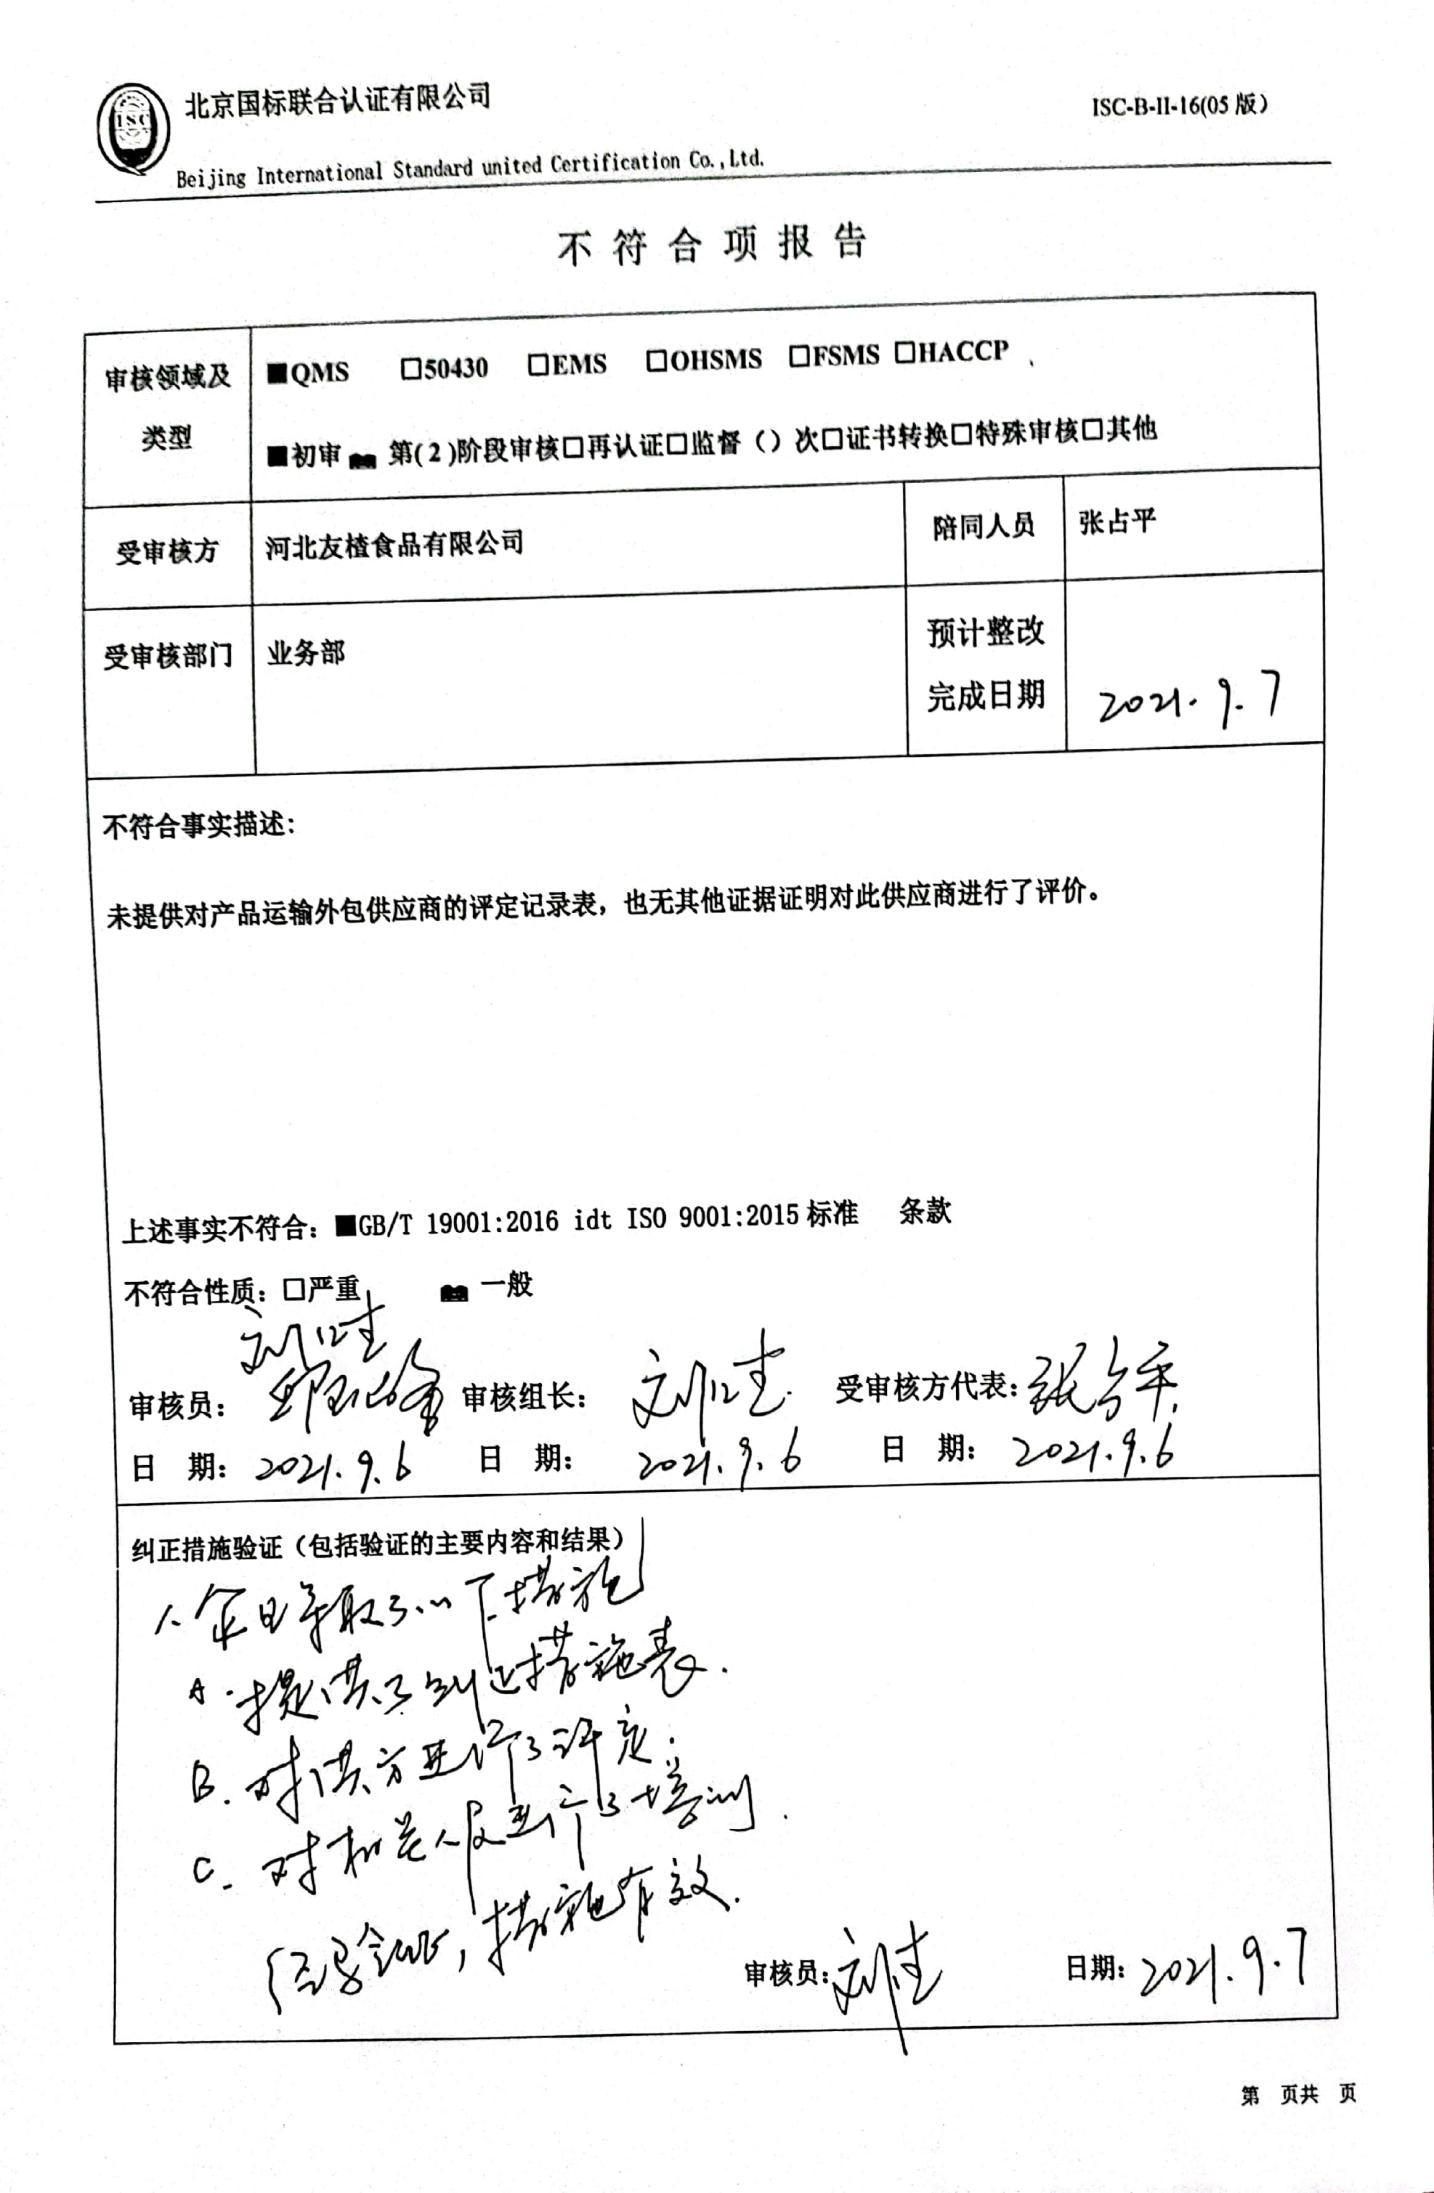 ISC
北京国标联合认证有限公司
ISC-B-II-16(05 版)
Beijing International Standard united Certification Co.,Ltd.
不符合项报告
审核领域及类型
■QMS □50430 □EMS □OHSMS □FSMS □HACCP
■初审 ■ 第(2)阶段审核□再认证□监督（）次□证书转换□特殊审核□其他
受审核方 河北友楂食品有限公司 陪同人员 张占平
受审核部门 业务部 预计整改完成日期 2021.9.7
不符合事实描述：
未提供对产品运输外包供应商的评定记录表，也无其他证据证明对此供应商进行了评价。
上述事实不符合：■GB/T 19001:2016 idt ISO 9001:2015 标准 条款
不符合性质：□严重 ■ 一般
审核员： 审核组长： 受审核方代表：张占平
日 期：2021.9.6 日 期：2021.9.6 日 期：2021.9.6
纠正措施验证（包括验证的主要内容和结果）
采取了以下措施
A.提供了纠正措施表.
B.对供方进行了评定.
C.对相关人员进行了培训.
经验证,措施有效.
审核员： 日期：2021.9.7
第 页共 页